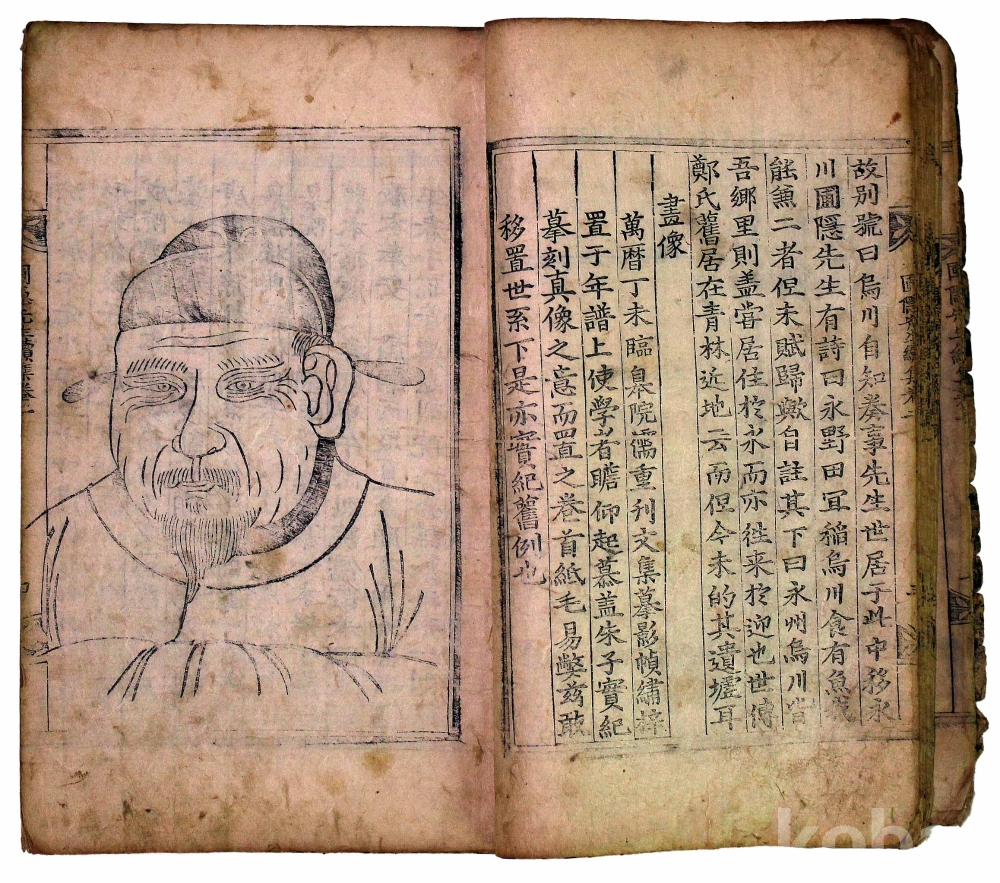 故別號曰烏川自知奏事先生世居于此中移永
川圃隱先生有詩曰永野田冝稲烏川食有魚我
能兼二者但未賦歸歟自註其下曰永州烏川皆
吾鄉里則盖嘗居住於永而亦徃来於迎也世傳
鄭氏舊居在青林近地云而但今未的其遺墟耳
畫像
萬暦丁未臨皐院儒重刊文集摹影幀繡梓
置于年譜上使學者瞻仰起慕盖朱子實紀
摹刻真像之意而置之卷首紙毛易獘玆敢
移置世系下是亦實紀舊例也